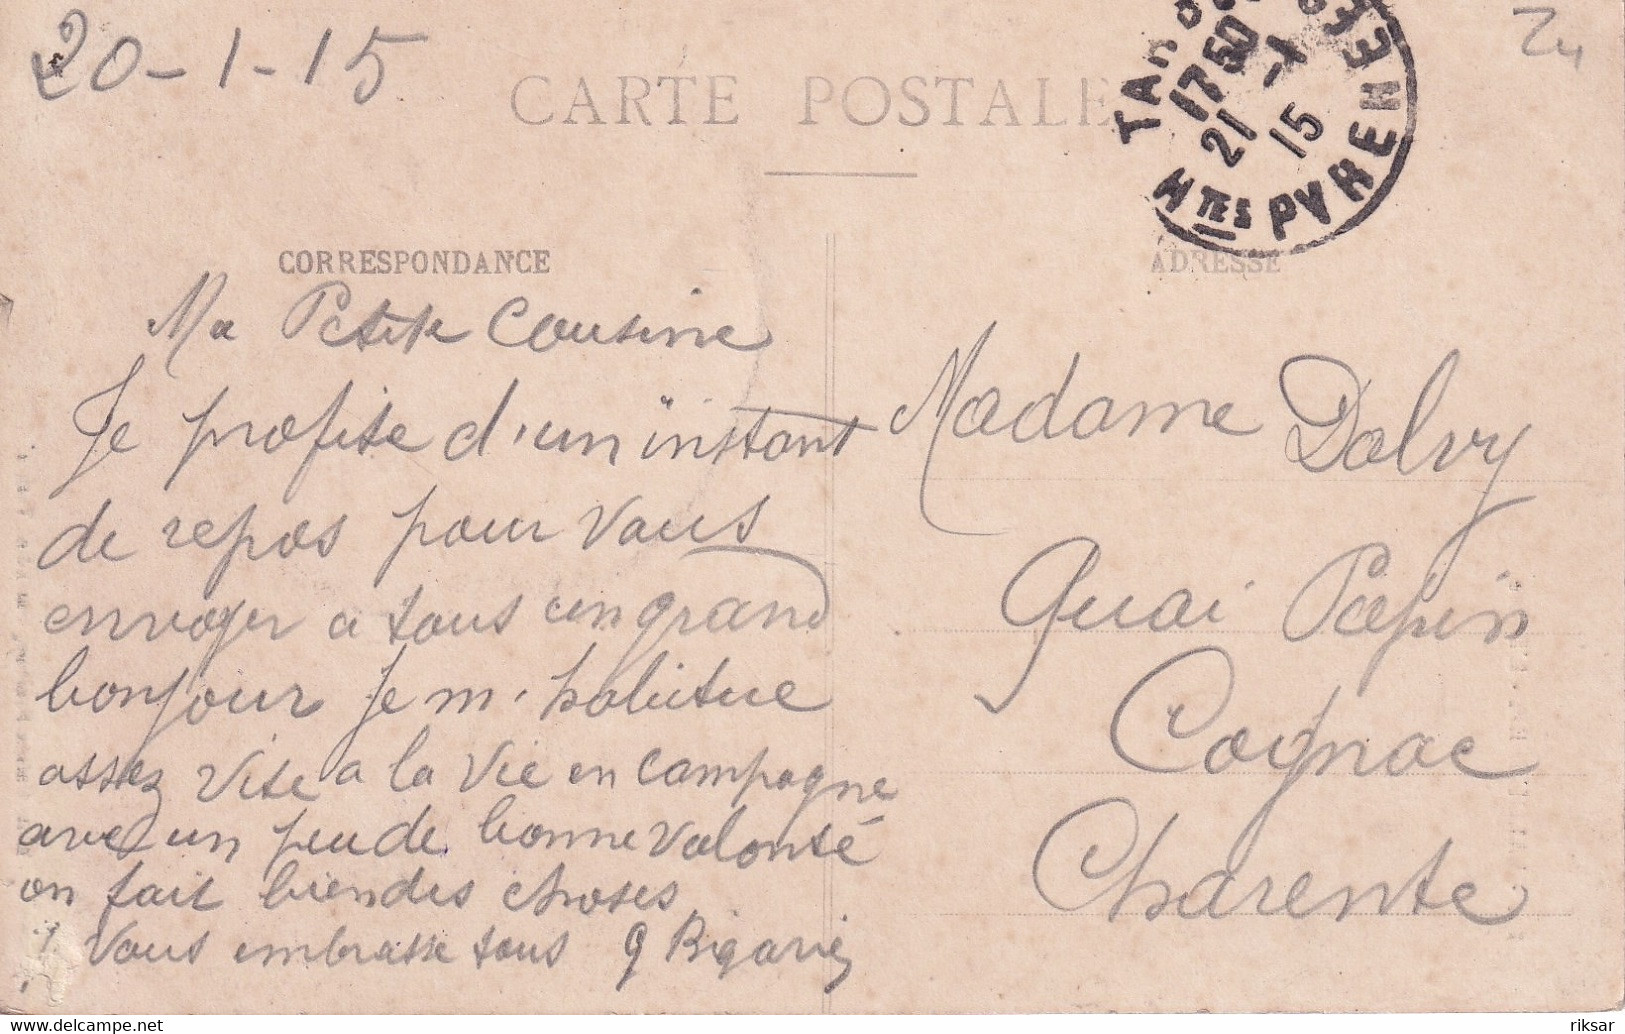 20-1-15
CARTE POSTALE
TARBES
17 50
21 -1
15
HTES PYRENEES
CORRESPONDANCE
ADRESSE
Ma Petite Cousine
Je profite d'un instant
de repos pour vous
envoyer a tous un grand
bonjour Je m'habitue
assez vite a la vie en campagne
avec un peu de bonne volonté
on fait bien des choses
Vous embrasse tous
Madame Dalvy
Quai Papin
Cognac
Charente
riksar